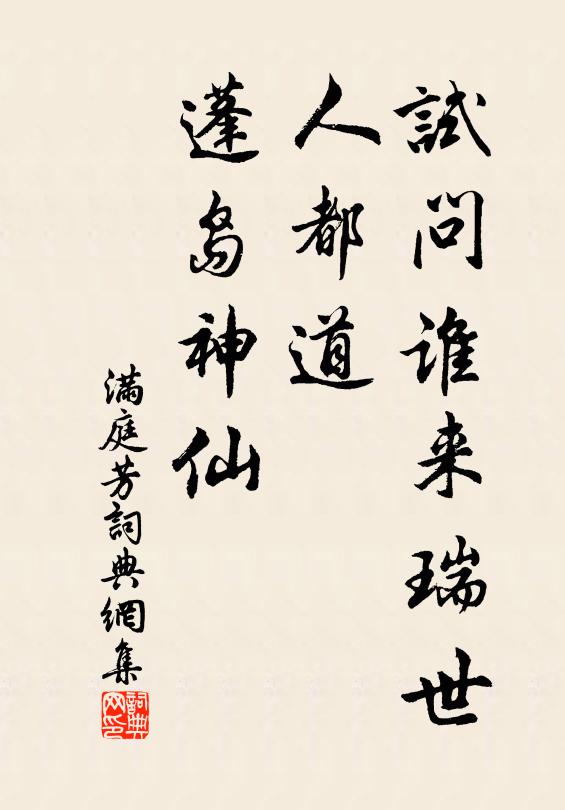 試問誰来瑞世
人都道
蓬島神仙
滿庭芳詞典網集
詞典网印